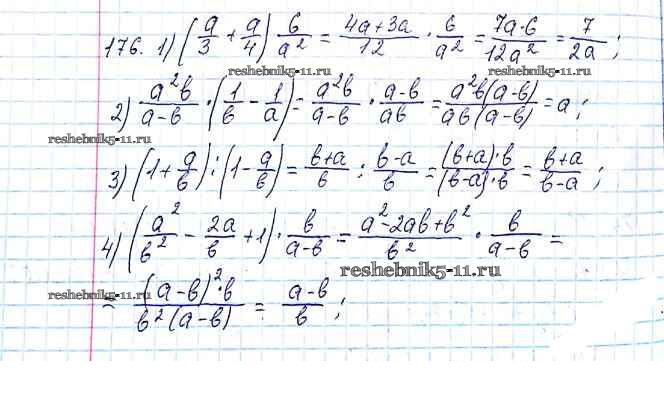 176. 1) (a/3 + a/4) 6/a² = (4a+3a)/12 · 6/a² = (7a·6)/(12a²) = 7/(2a) ;
reshebnik5-11.ru
reshebnik5-11.ru
2) a²b/(a-b) · (1/b - 1/a) = a²b/(a-b) · (a-b)/(ab) = (a²b(a-b))/(ab(a-b)) = a ;
reshebnik5-11.ru
3) (1 + a/b) : (1 - a/b) = (b+a)/b : (b-a)/b = ((b+a)·b)/((b-a)·b) = (b+a)/(b-a) ;
4) (a²/b² - 2a/b + 1) · b/(a-b) = (a²-2ab+b²)/b² · b/(a-b) =
reshebnik5-11.ru
reshebnik5-11.ru
= ((a-b)²·b)/(b²(a-b)) = (a-b)/b ;